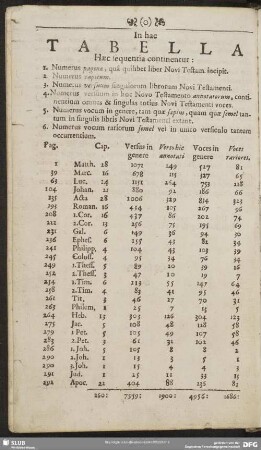 (o)
In hac
TABELLA
Hæc sequentia continentur:
1. Numerus paginæ, qua quilibet liber Novi Testam. incipit.
2. Numerus capitum.
3. Numerus versuum singulorum librorum Novi Testamenti.
4. Numerus versuum in hac Novo Testamento annotatorum, conti-
nentium omnes & singulas totius Novi Testamenti voces.
5. Numerus vocum in genere, tam quæ sæpius, quam quæ semel tan-
tum in singulis libris Novi Testamenti extant.
6. Numerus vocum rariorum semel vel in unico versiculo tantum
occurrentium.
Pag. Cap. Versus in genere Versus hic annotati Voces in genere Voces rariores.
1 Matth. 28 1071 249 527 83
39 Marc. 16 678 115 327 65
63 Luc. 24 1151 264 753 118
104 Johann. 21 880 92 186 66
131 Acta 28 1006 329 814 323
195 Roman. 16 434 105 267 96
208 1.Cor. 16 437 86 202 74
2.Cor. 13 256 75 195
Gal. 6 149 36 94
236 Ephes. 6 155 43 82 34
241 Philipp. 4 104 43 103
245 Coloss. 4 95 54 76
249 1.Thess. 5 89 20 59 16
252 2.Thess. 3 47 10 19 7
254 1.Tim. 6 113 55 147 64
258 2.Tim. 4 83 41 95 46
261 Tit. 3 46 17 70 31
263 Philem. 1 25 7 17 5
264 Hebr. 13 303 126 304 123
275 Jac. 5 108 48 118 58
279 1.Pet. 5 105 49 107 58
283 2.Pet. 3 61 32 102 46
286 1.Joh. 5 105 8 8 2
290 2.Joh. 1 13 3 5 1
290 3.Joh. 1 15 4 4 3
291 Jud. 1 25 11 33 15
292 Apoc. 22 404 88 82
260: 7959: 1900: 4956: 1686:
SLUB
DFG